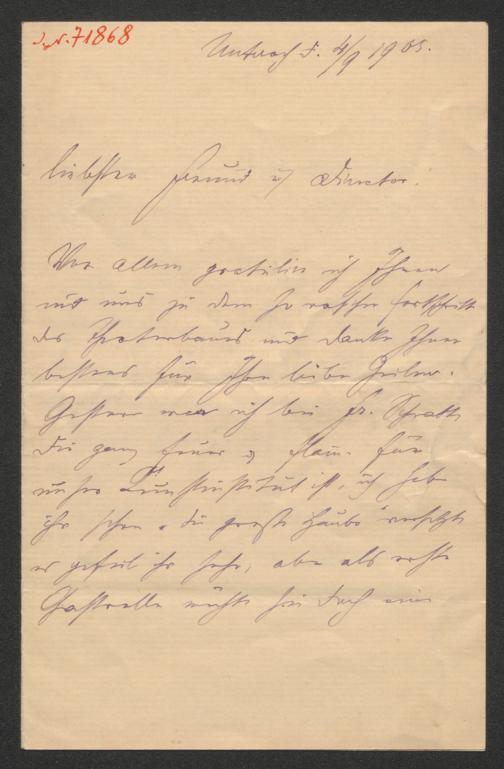 J.N. 71868
Unterach d. 4/9 1905.
Liebster Freund u Director!
Vor allem gratulire ich Ihnen
und uns zu dem so raschen Fortschritt
des Theaterbaues und danke Ihnen
bestens für Ihre lieben Zeilen.
Gestern war ich bei Fr. Schratt
die ganz Feuer u Flamme für
unser Kunstinstitut ist, ich habe
ihr schon "die große Haube"
es gefiel ihr sehr, aber als erste
Gastrolle möchte sie doch eine